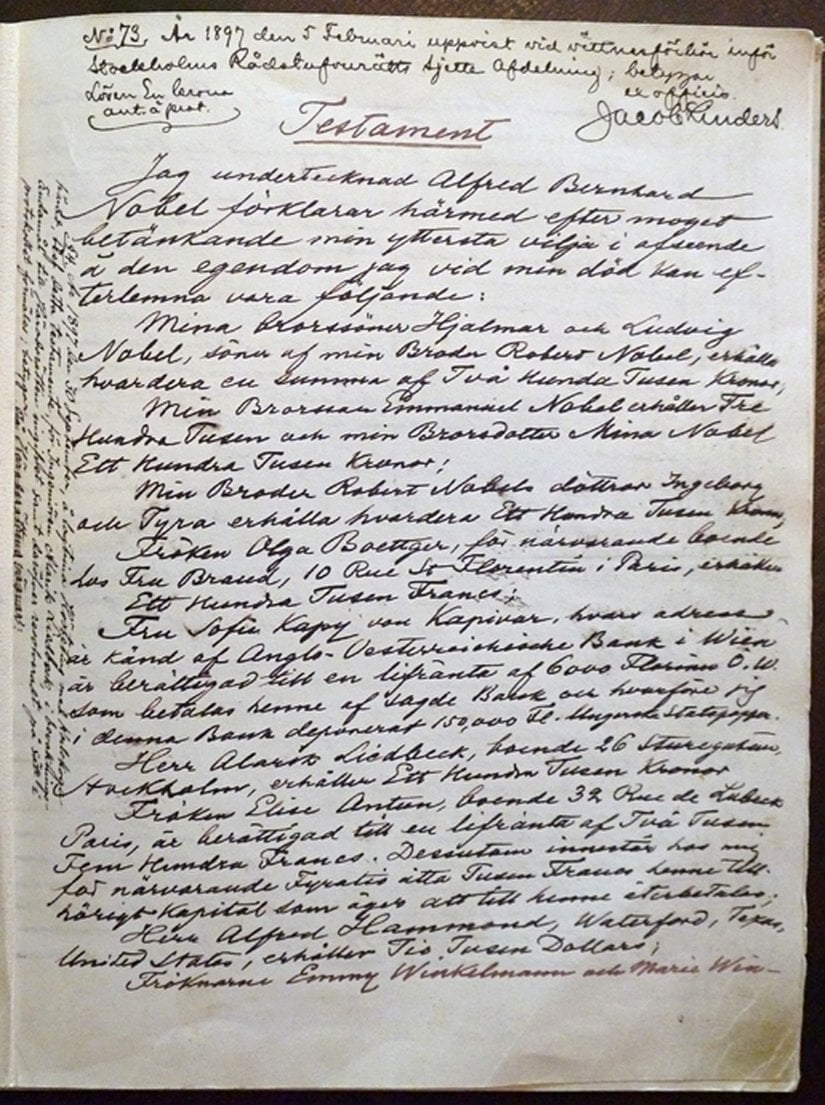 No 73. År 1897 den 5 Februari uppvist vid vittnesförhör inför
Stockholms Rådstufvurätts sjette Afdelning; betygar
ex officio.
Lösen En krona
ant. å prot.
Jacob Linders
Testament
Jag undertecknad Alfred Bernhard
Nobel förklarar härmed efter moget
betänkande min yttersta vilja i afseende
å den egendom jag vid min död kan ef-
terlemna vara följande:
Mina brorssöner Hjalmar och Ludvig
Nobel, söner af min Broder Robert Nobel, erhålla
hvardera en summa af Två Hundra Tusen Kronor,
Min Brorsson Emmanuel Nobel erhåller Tre
Hundra Tusen och min Brorsdotter Mina Nobel
Ett Hundra Tusen Kronor;
Min Broder Robert Nobels döttrar Ingeborg
och Tyra erhålla hvardera Ett Hundra Tusen Kronor;
Fröken Olga Boettger, för närvarande boende
hos Fru Brand, 10 Rue St Florentin i Paris, erhåller
Ett Hundra Tusen Francs;
Fru Sofie Kapy von Kapivar, hvars adress
är känd af Anglo-Oesterreichische Bank i Wien
är berättigad till en lifränta af 6000 Florins Ö.W.
som betalas henne af sagde Bank och hvarföre jag
i denna Bank deponerat 150,000 Fl. Ungerska Statspapper.
Herr Alarik Liedbeck, boende 26 Sturegatan,
Stockholm, erhåller Ett Hundra Tusen Kronor
Fröken Elise Antun, boende 32 Rue de Lubeck
Paris, är berättigad till en lifränta af Två Tusen
Fem Hundra Francs. Dessutom innestår hos mig
för närvarande Fyratio åtta Tusen Francs henne till-
hörigt Kapital som äger att till henne återbetalas;
Herr Alfred Hammond, Waterford, Texas,
United States, erhåller Tio Tusen Dollars;
Fröknarne Emmy Winkelmann och Marie Win-
År 1897 den 30 September, å lagtima
detta testamente för Ingeniören Alarik Liedbeck, i